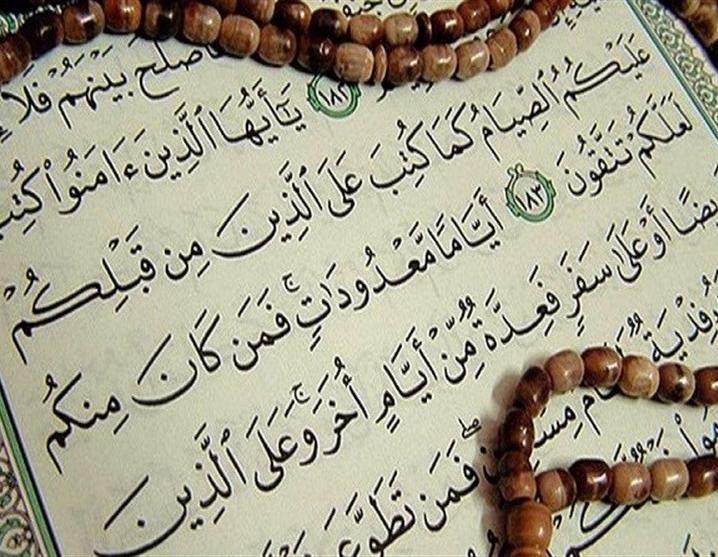 فَأَصْلَحَ بَيْنَهُمْ فَلَآ
١٨٢ يَٰٓأَيُّهَا ٱلَّذِينَ ءَامَنُوا۟ كُتِبَ
عَلَيْكُمُ ٱلصِّيَامُ كَمَا كُتِبَ عَلَى ٱلَّذِينَ مِن قَبْلِكُمْ
لَعَلَّكُمْ تَتَّقُونَ ١٨٣ أَيَّامًا مَّعْدُودَٰتٍ ۚ فَمَن كَانَ مِنكُم
يضًا أَوْ عَلَىٰ سَفَرٍ فَعِدَّةٌ مِّنْ أَيَّامٍ أُخَرَ ۚ وَعَلَى ٱلَّذِينَ
فِدْيَةٌ فَمَن تَطَوَّعَ